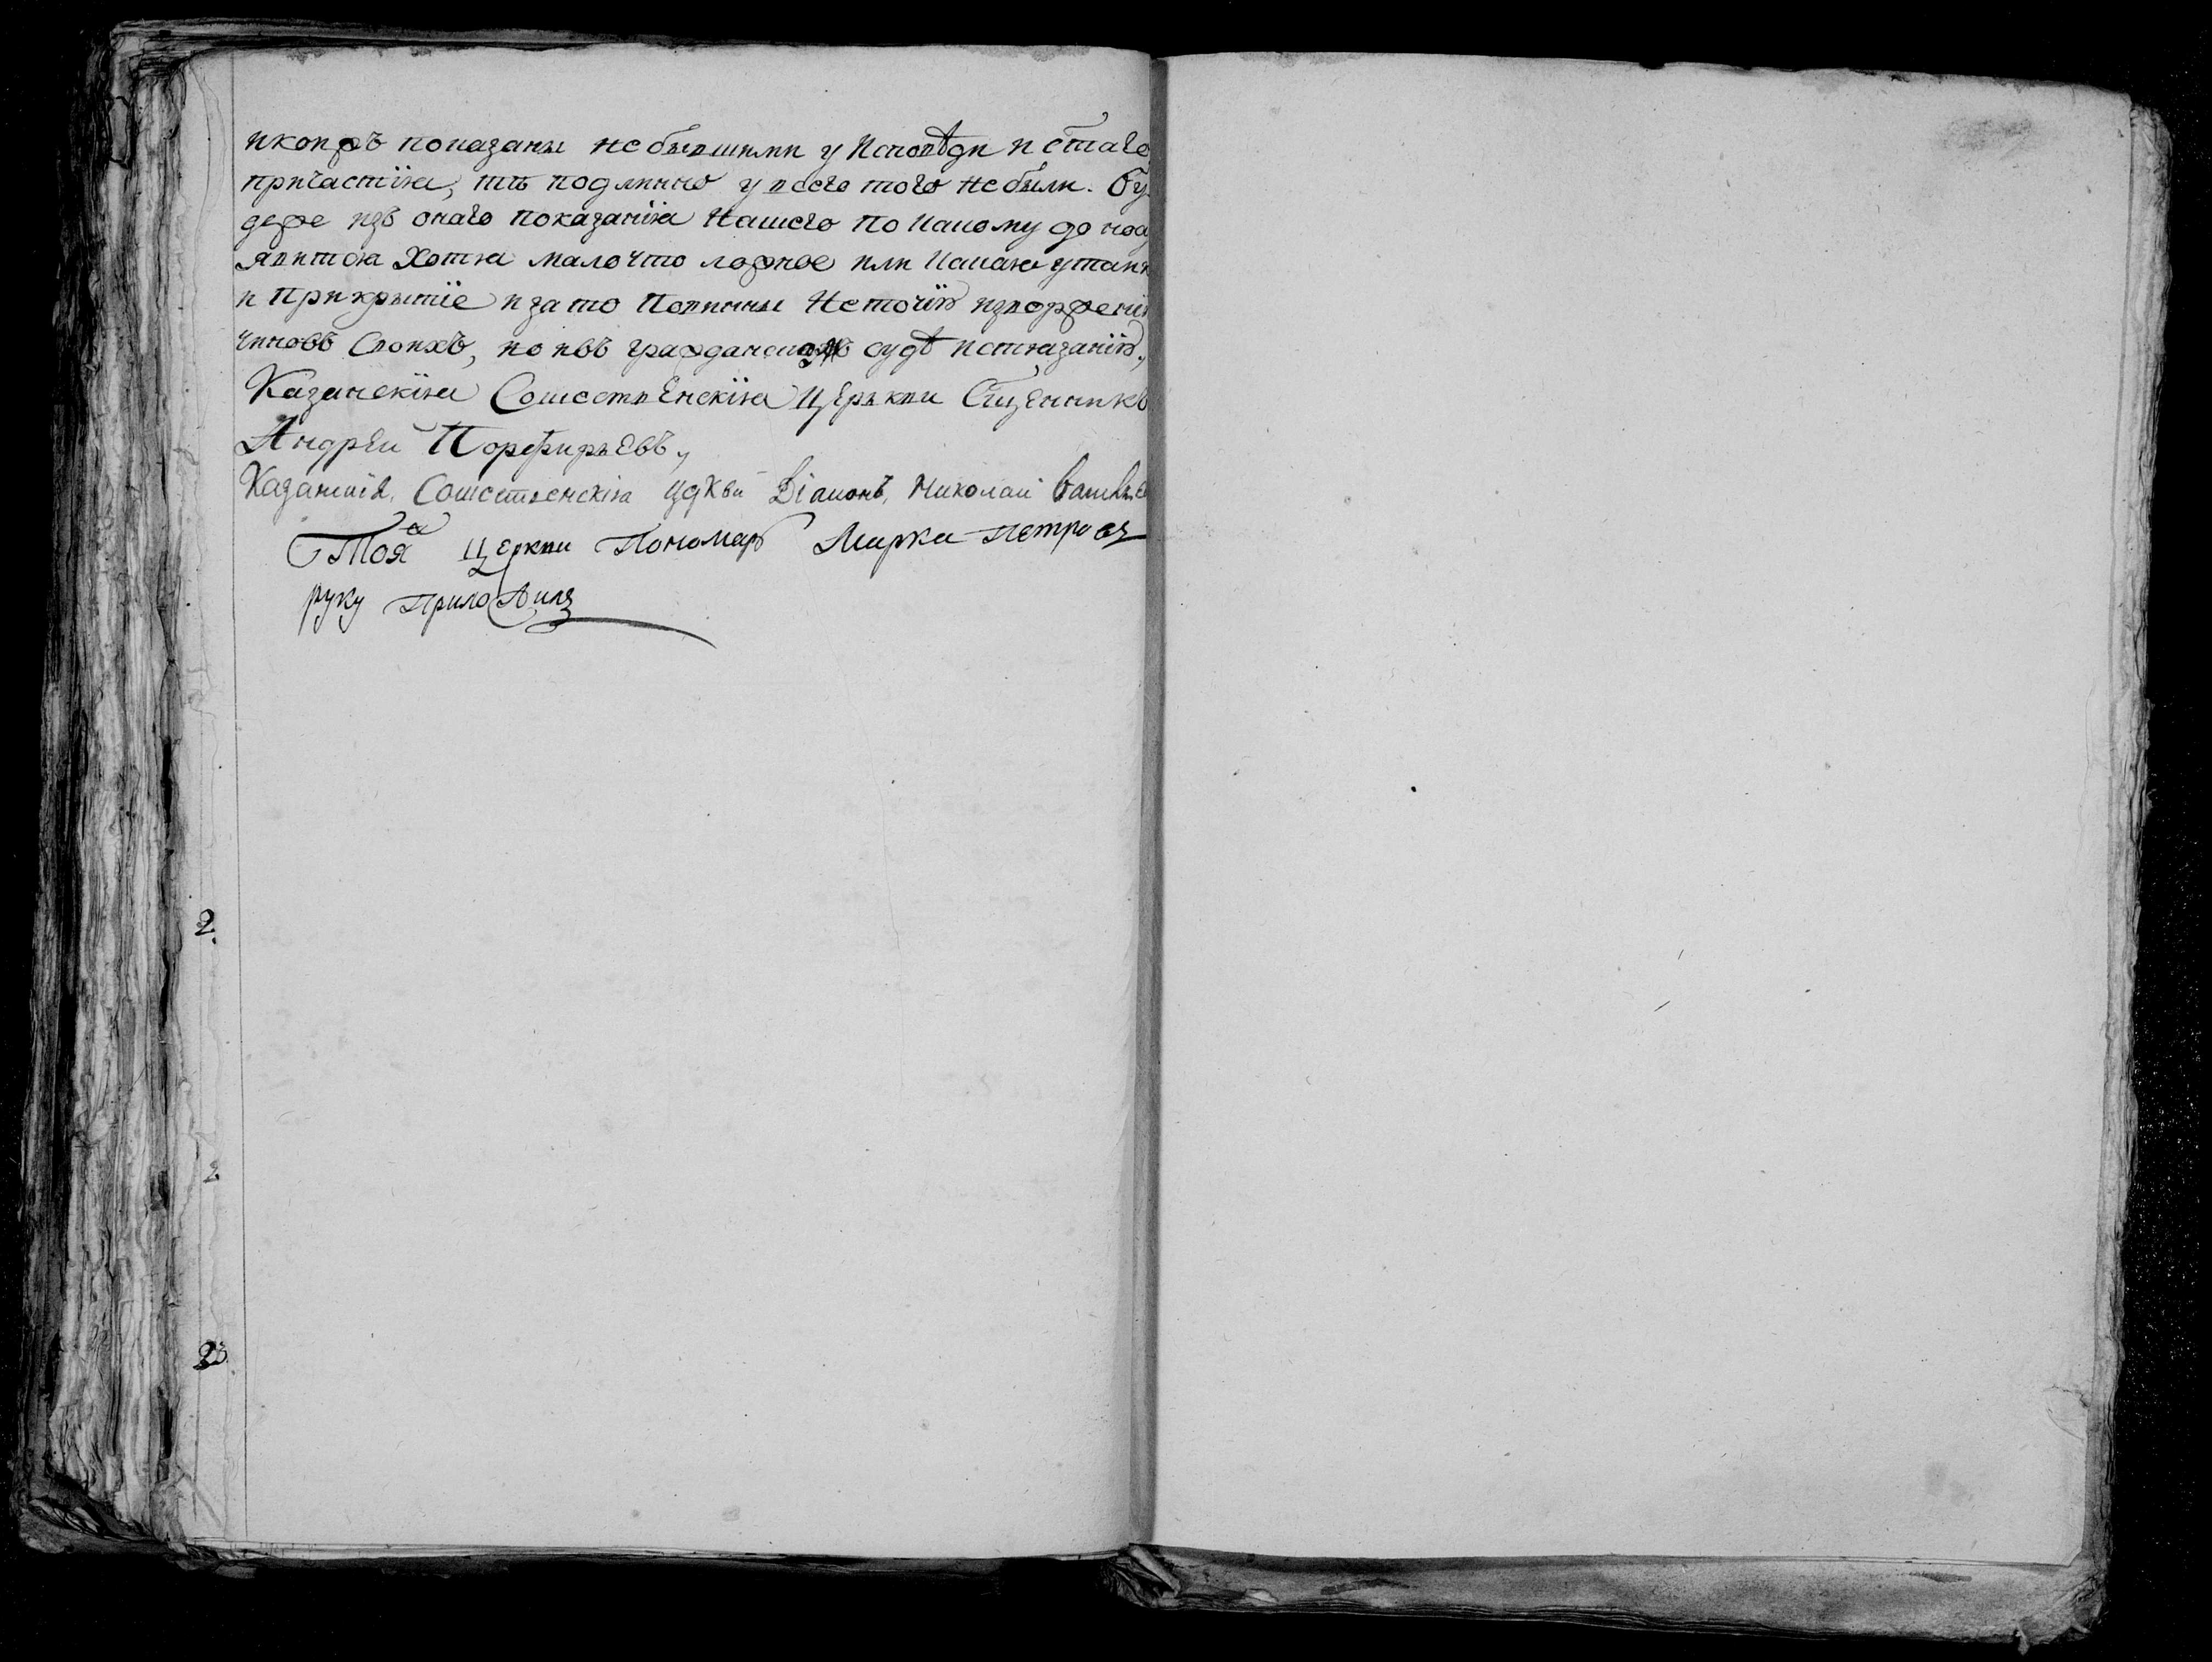 и коиже показаны не бывшими у Исповѣди и стаго
причастїя, тѣ подлинно у всего того не были. Бу
деже изъ онаго показанїя нашего по какому до нос
явится хотя мало что ложное или какая утаи
и прикрытїе и за то повинны не точїю извержені
чиновъ своихъ, но и въ гражданскомъ судѣ истязанїю,
Казанскїя Сошественскїя церькви Сщенникъ
Андрей Порфирьевъ,
Казанскїя Сошественскїя цркви Дїаконъ, Николай Васильев
Тоя церкви Пономарь Марка Петровъ
руку приложилъ
2.
2
23.